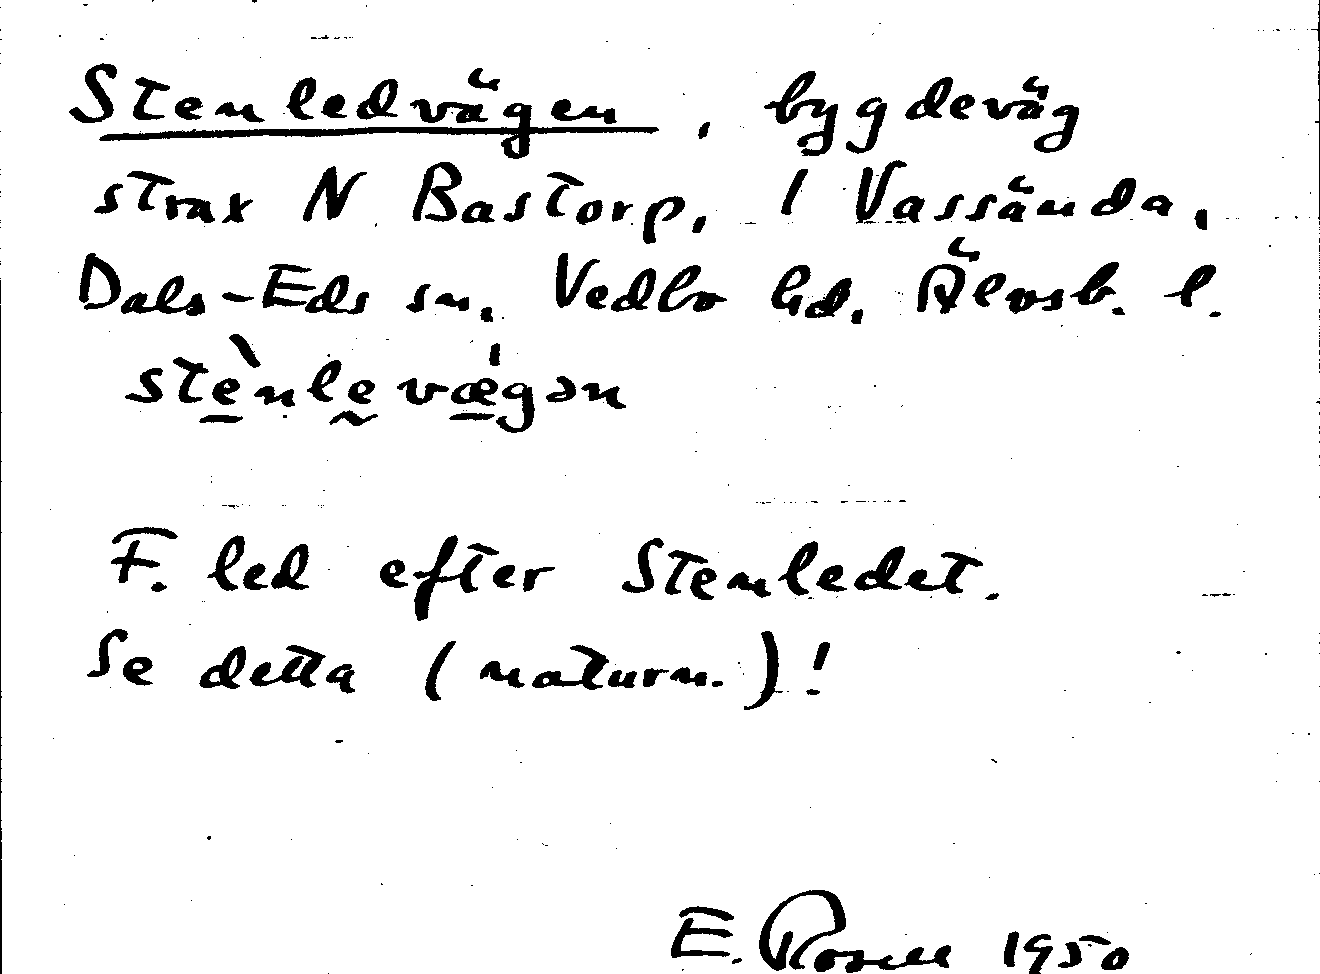 Stenledvägen, bygdeväg
strax N Bastorp, 1 Vassända,
Dals-Eds sn, Vedbo hd, Älvsb. l.
stè̱nlḛvǽ̱gən
F. led efter Stenledet.
Se detta (naturn.)!
E. Rosell 1950